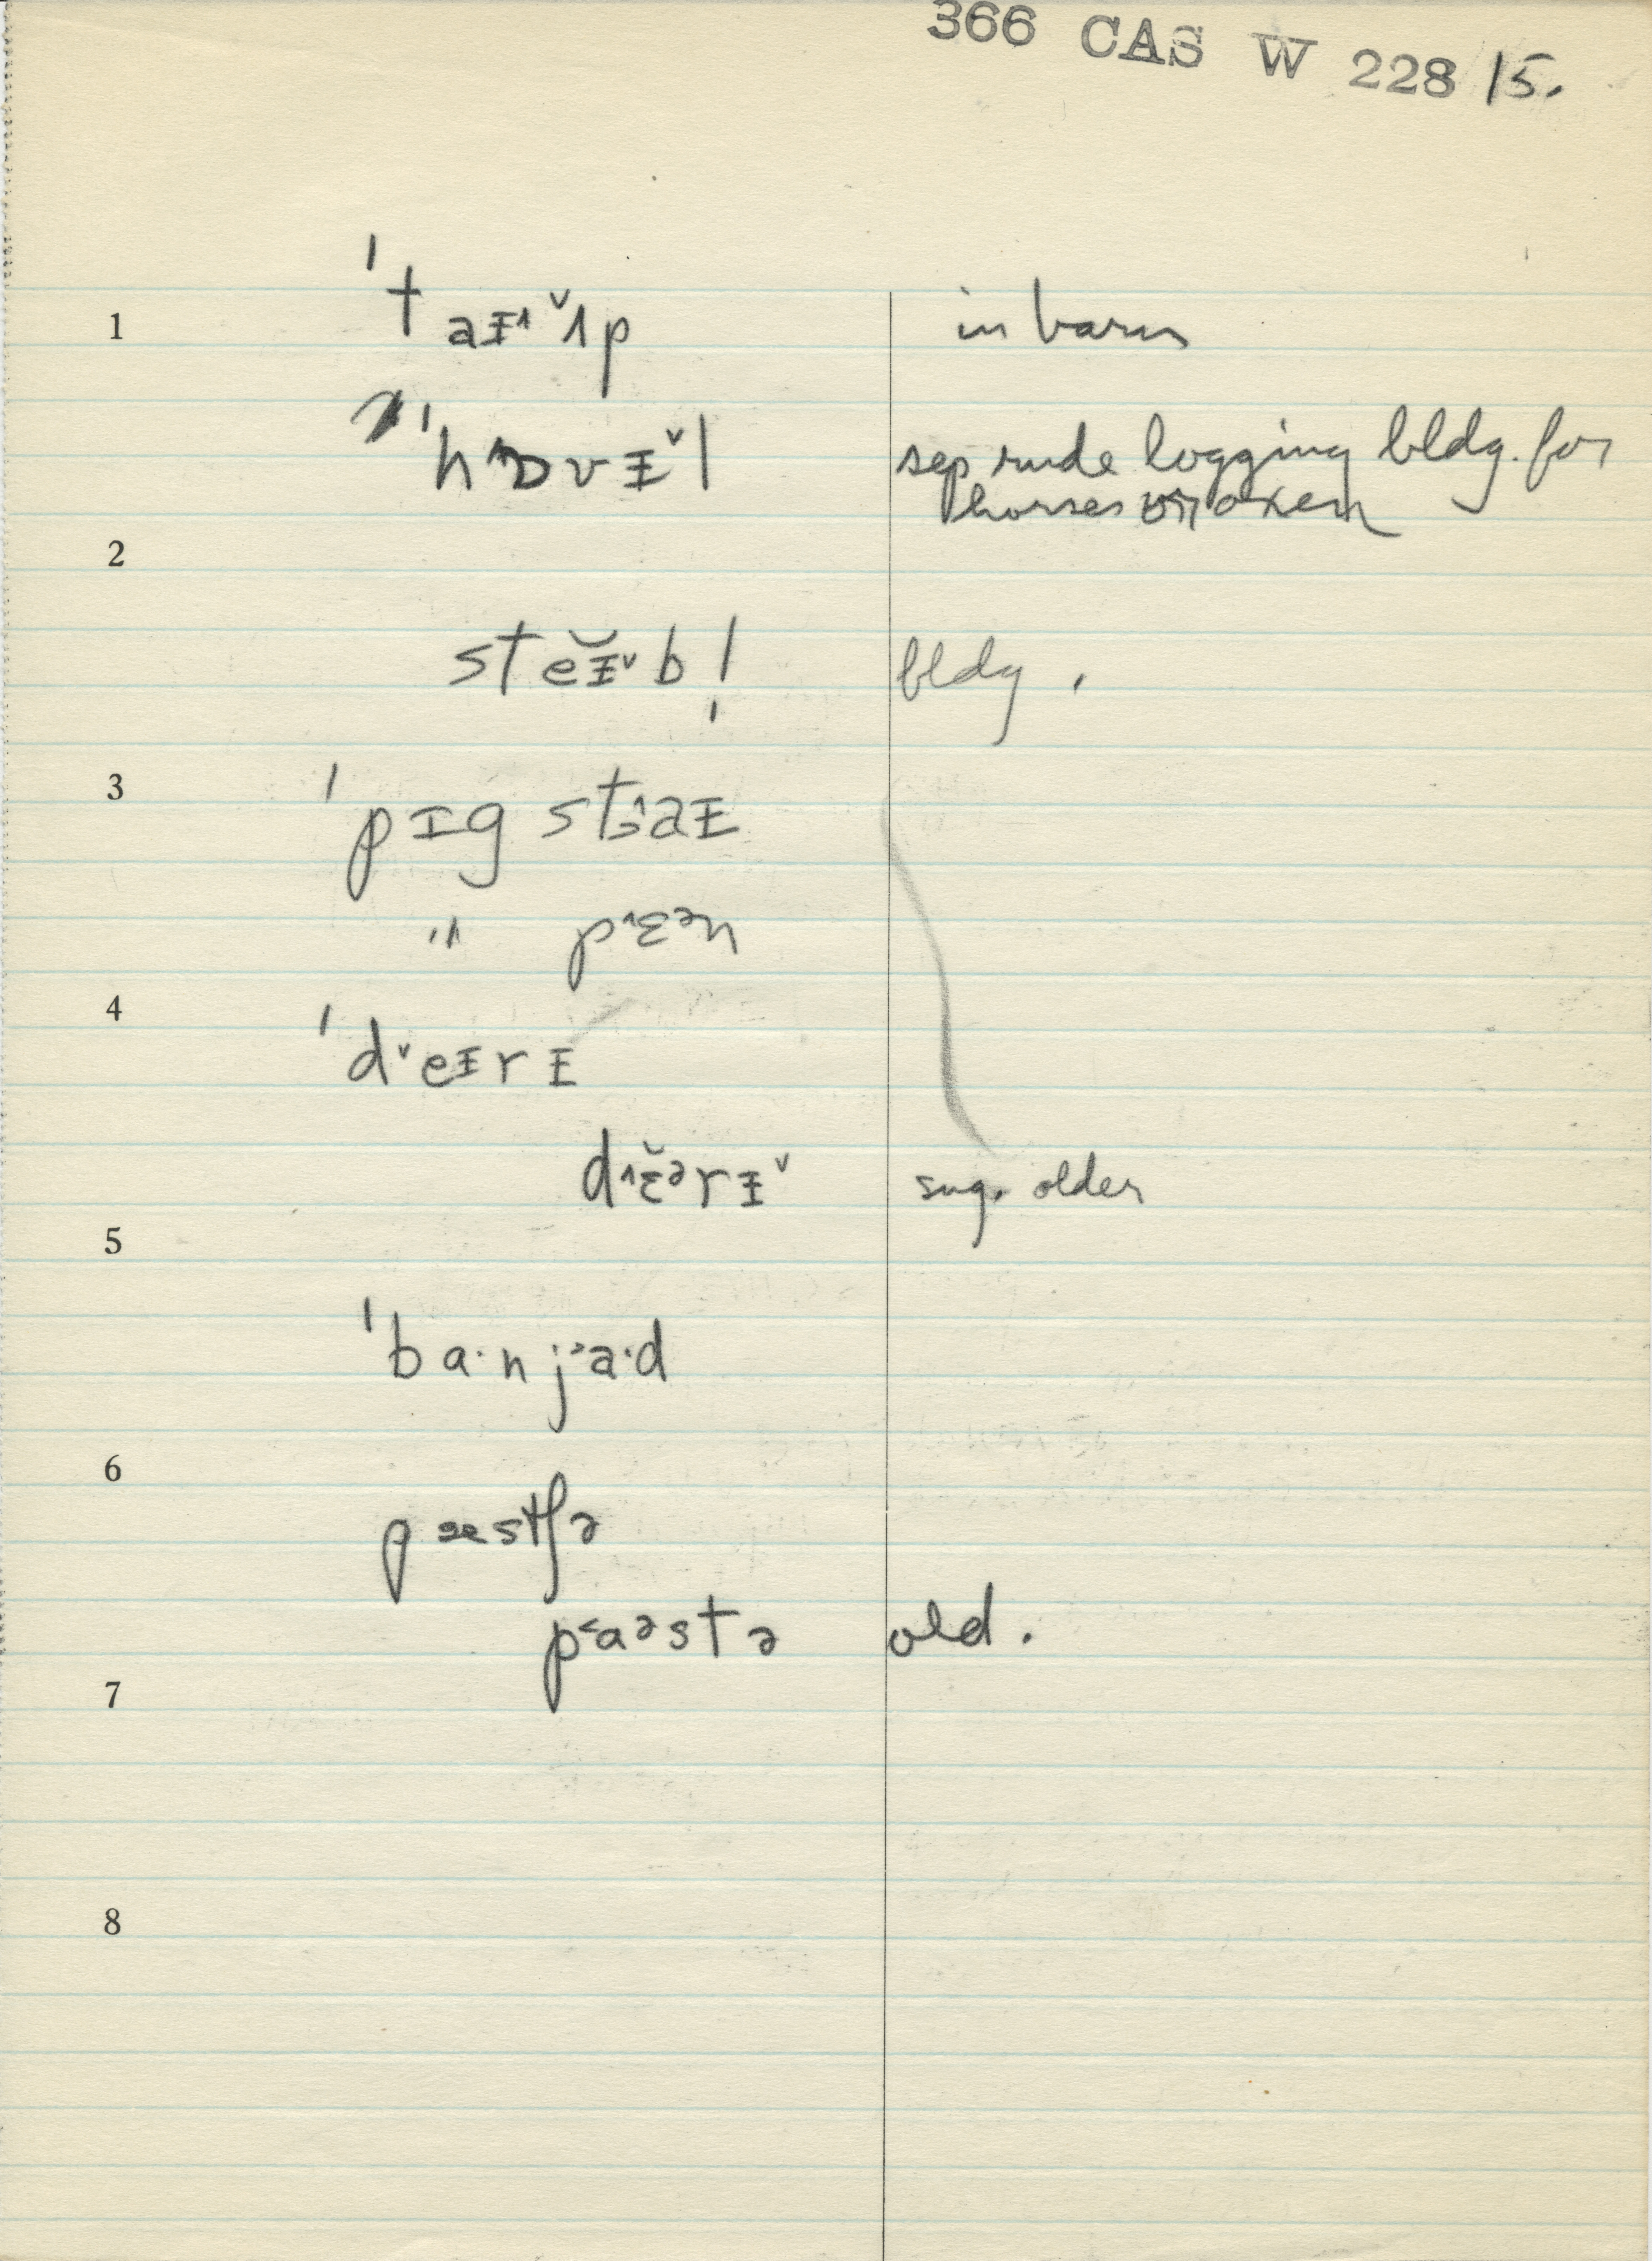 366 CAS W 228 15.
1 ˈtaɪ˄ ˅ʌp in barn
ˈhɒvɪ˅l sep rude logging bldg. for
horses or oxen
2
steɪ̆˅bl̩ bldg.
3 ˈpɪg st˒˄aɪ
" p˄ɛᵊn
4 ˈd˅eɪrɪ
d˄ɛ̆ᵊrɪ˅ sug. older
5
ˈba·nj˃a·d
6
pæstʃə
p˂aᵊstə old.
7
8